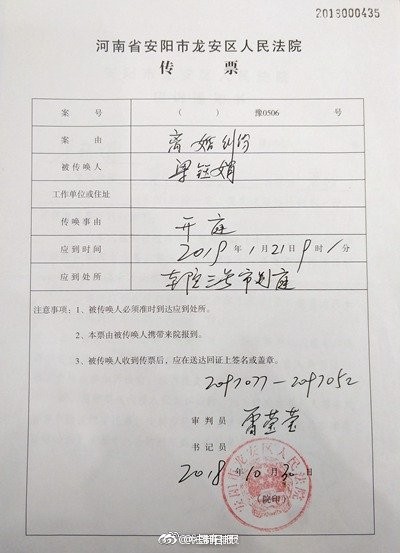 2018000435
河南省安阳市龙安区人民法院
传 票
案 号 （ ） 豫0506 号
案 由 离婚纠纷
被传唤人 梁钰娟
工作单位或住址
传唤事由 开庭
应到时间 2019 年 1 月 21 日 9 时 / 分
应到处所
注意事项：1、被传唤人必须准时到达应到处所。
2、本票由被传唤人携带来院报到。
3、被传唤人收到传票后，应在送达回证上签名或盖章。
审判员
书记员
2018 年 10 月 30 日
安阳市龙安区人民法院
（院印）